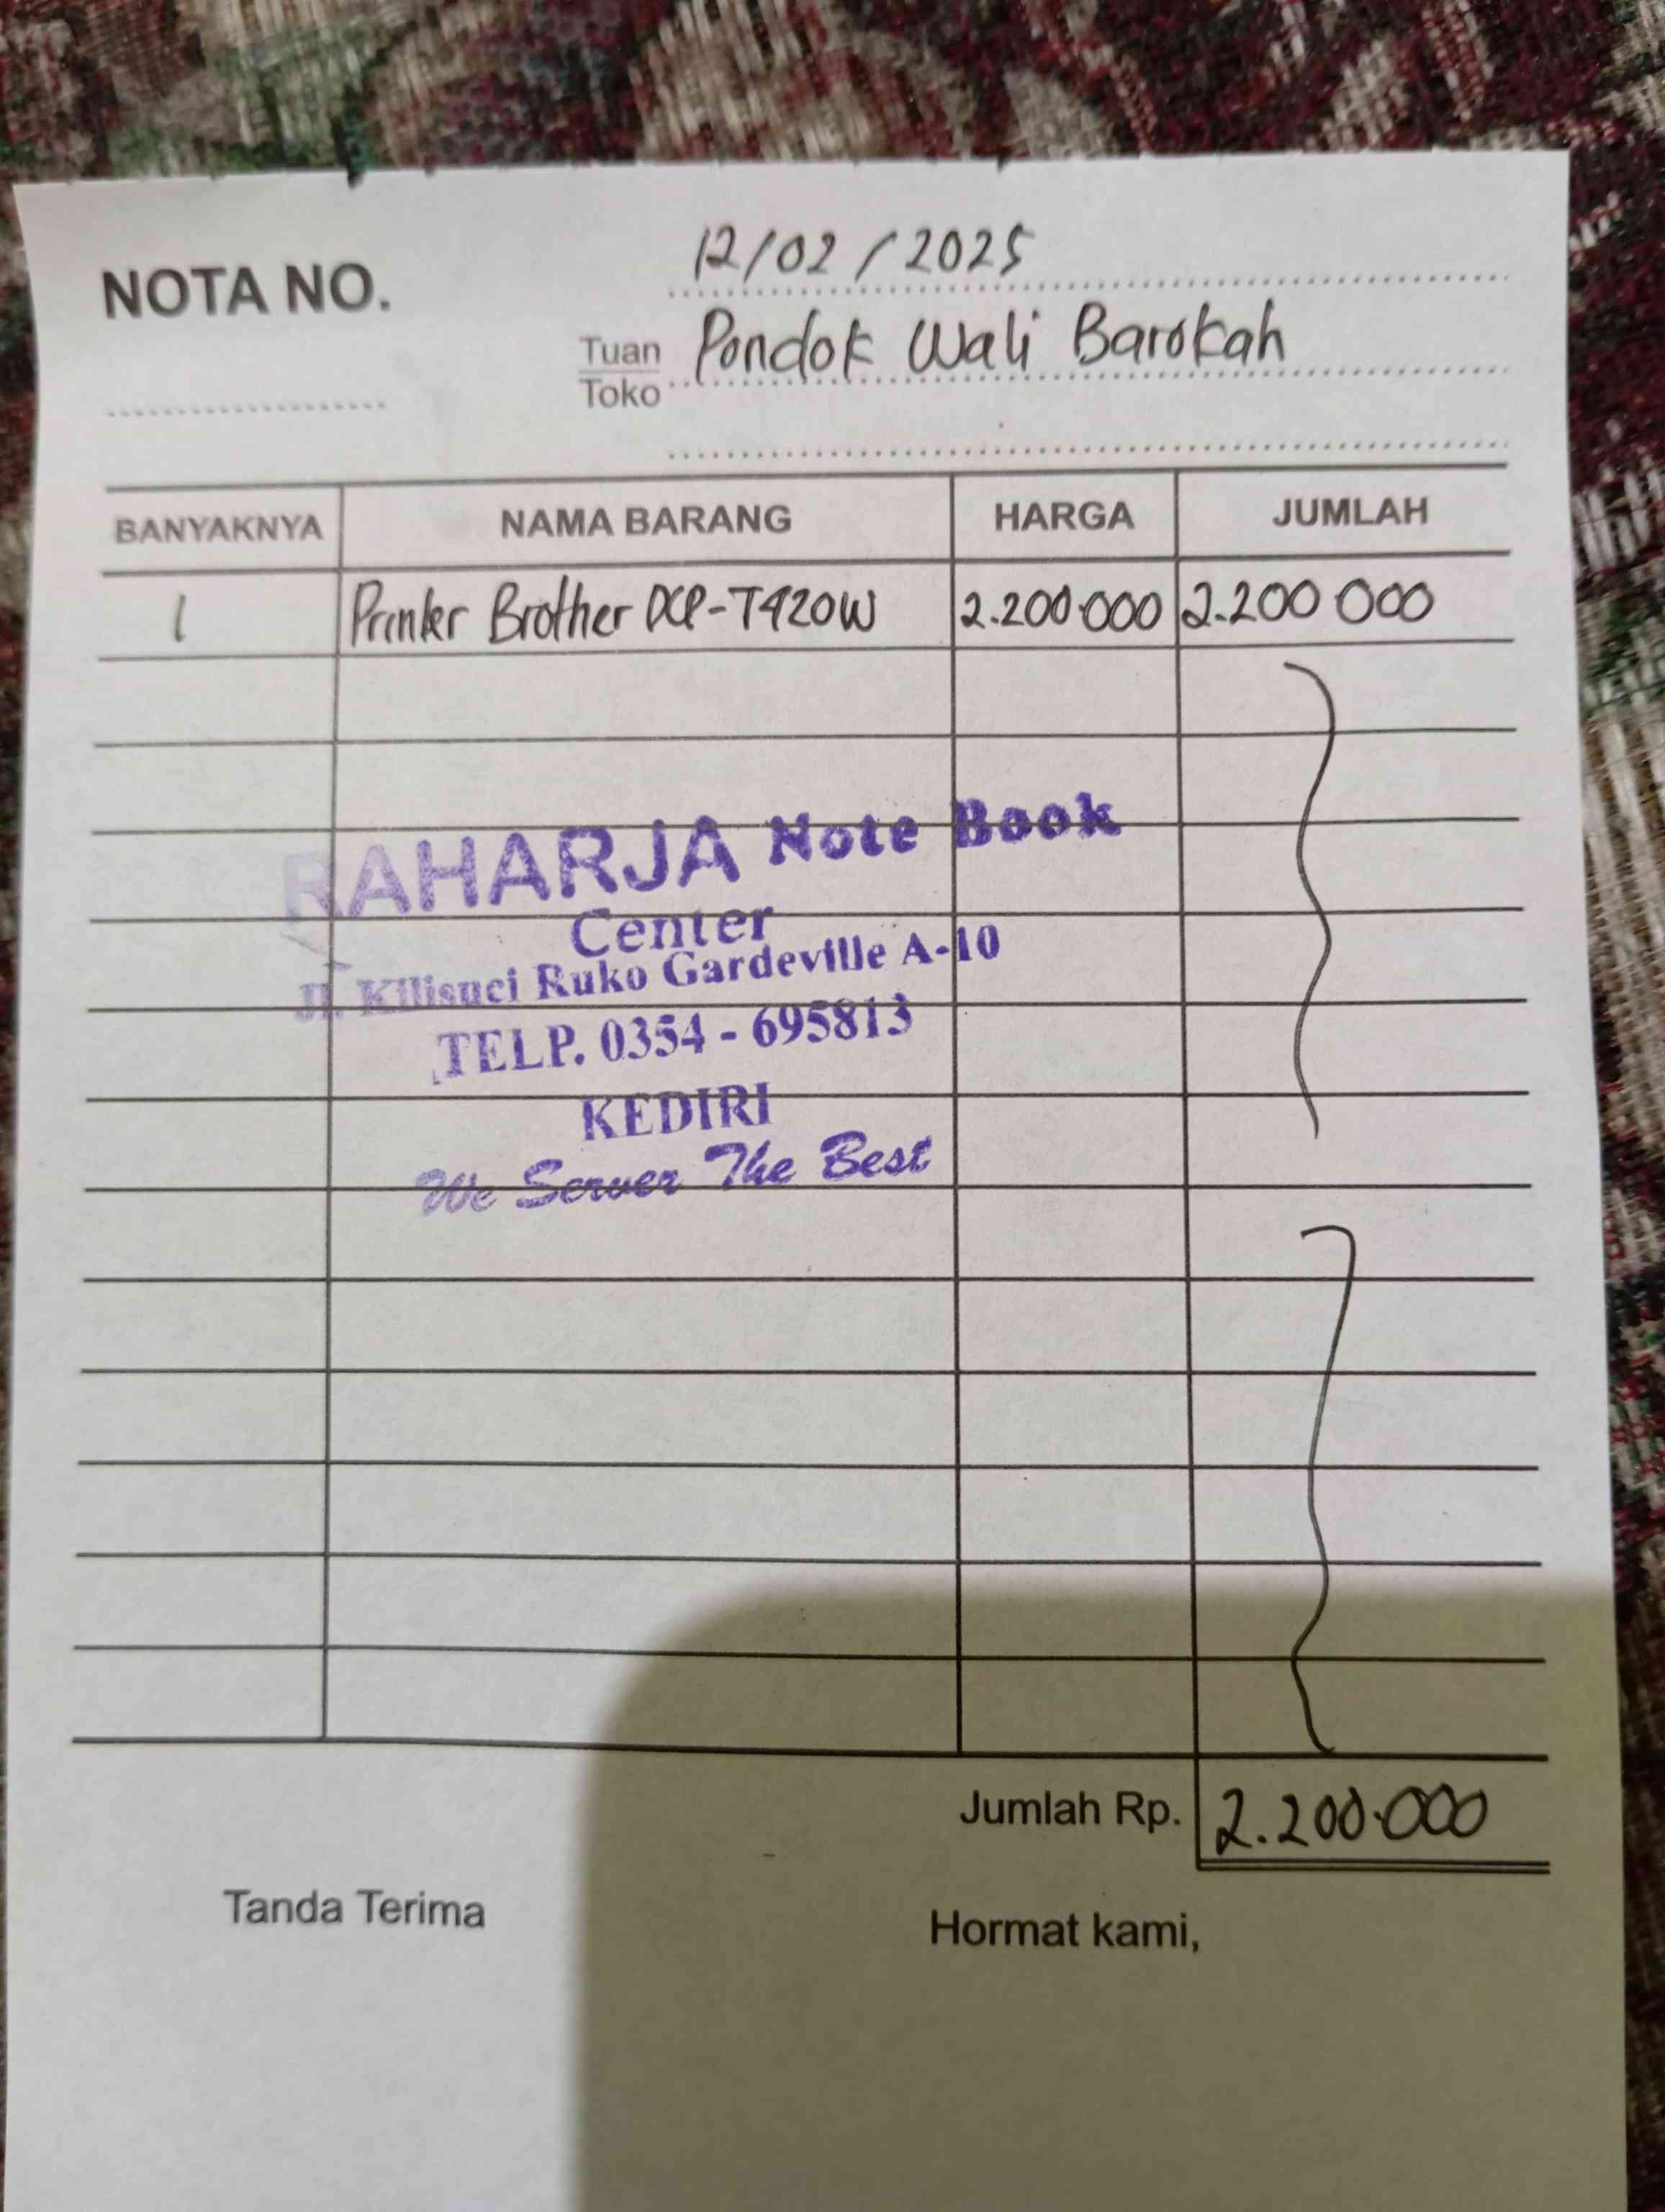 12/02/2025
NOTA NO.
Tuan Pondok Wali Barokah
Toko
BANYAKNYA NAMA BARANG HARGA JUMLAH
1 Printer Brother DCP-T420W 2.200.000 2.200 000
RAHARJA Note Book
Center
Jl. Kilisuci Ruko Gardeville A-10
TELP. 0354 - 695813
KEDIRI
We Server The Best
Jumlah Rp. 2.200.000
Tanda Terima Hormat kami,